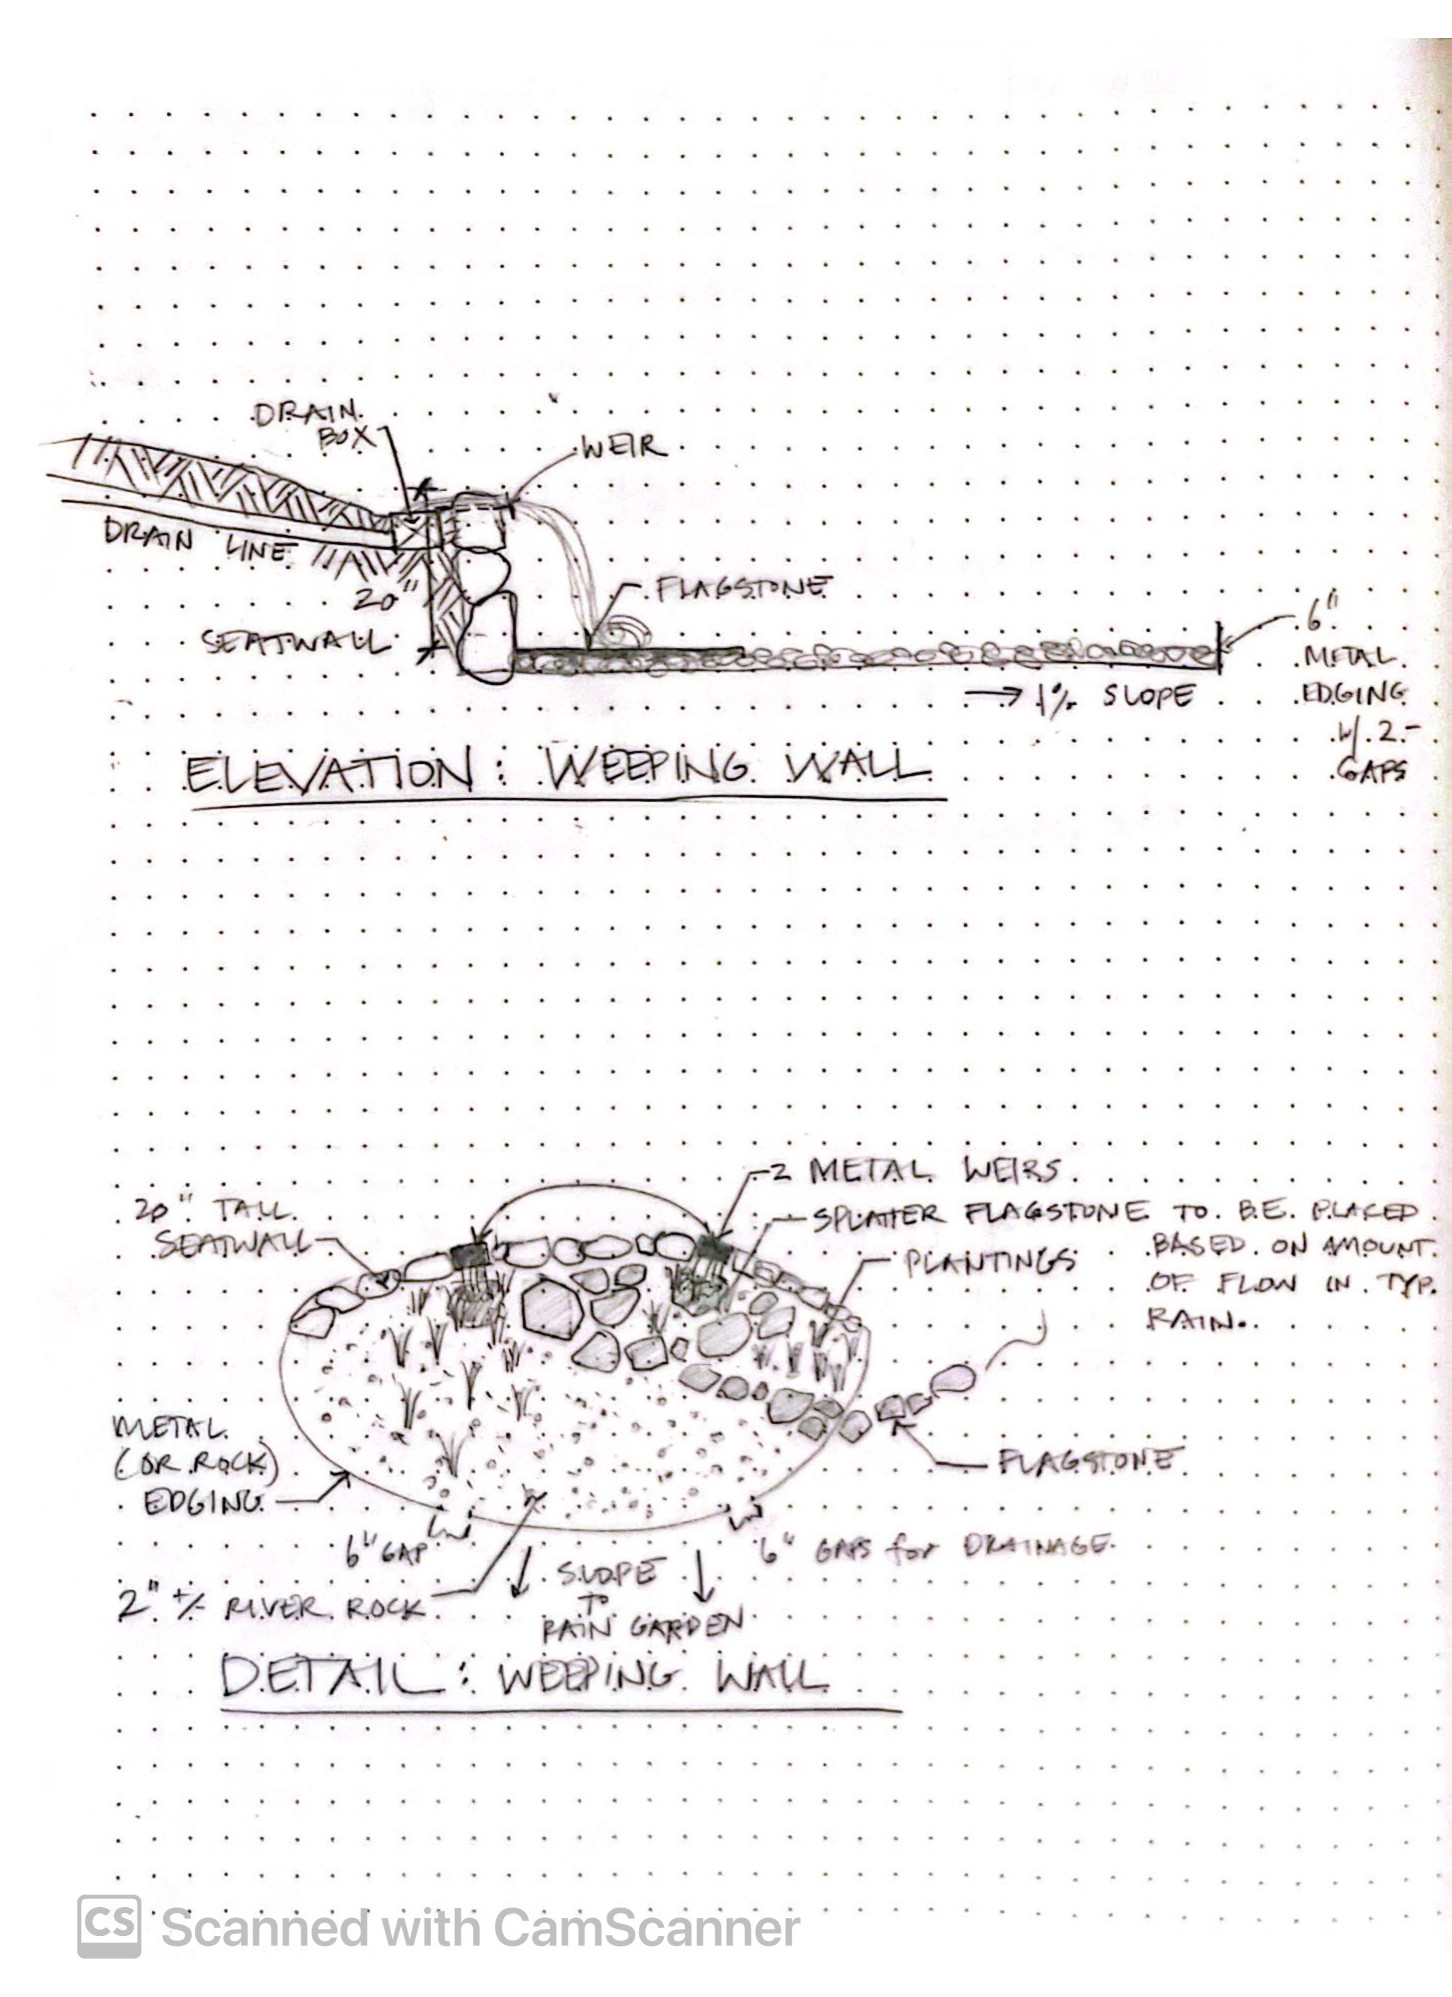 DRAIN
BOX
WEIR
DRAIN LINE
20"
SEATWALL
FLAGSTONE
6"
METAL
EDGING
W/ 2-
GAPS
→ 1% SLOPE
ELEVATION: WEEPING WALL
2 METAL WEIRS
20" TALL
SEATWALL
SPLATTER FLAGSTONE TO BE PLACED
BASED ON AMOUNT
OF FLOW IN TYP.
RAIN.
PLANTINGS
METAL
(OR ROCK)
EDGING
FLAGSTONE
6" GAP
6" GAPS for DRAINAGE
2" +/- RIVER ROCK
SLOPE
TO
RAIN GARDEN
DETAIL: WEEPING WALL
CS Scanned with CamScanner